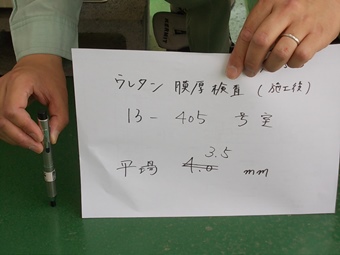 ウレタン 膜厚検査 (施工後)
13-405 号室
3.5
平場 4.0 mm